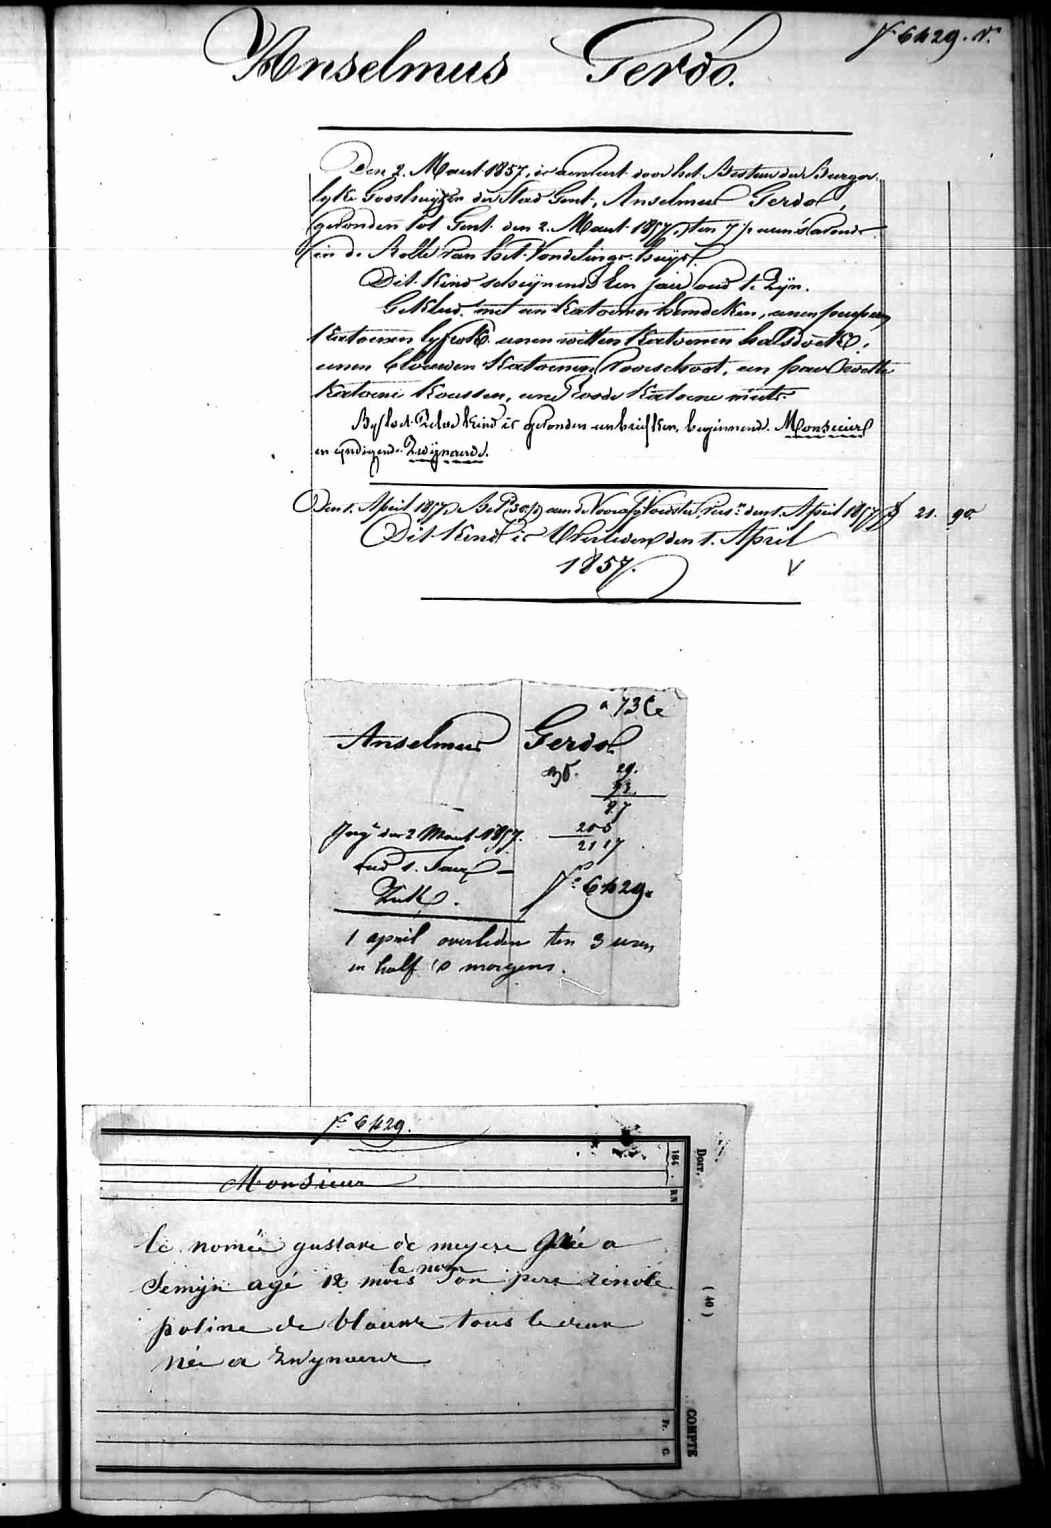 Fo 6429. N.
Anselmus Gerdo.
Den 2. Maart 1857, is aenveert door het Bestuur der Burger-
lyke Godshuyzen der Stad Gent, Anselmus Gerdo,
gevonden tot Gent den 2. Maart 1857, ten 7½ uren 's avonds
in de Rolle van het Vondelings-huys.
Dit Kind schynende Een jaer oud te Zyn.
Gekleed met een Katoenen hemdeken, eenen purperen
Katoenen lyfrok, eenen witten Katoenen halsdoek,
eenen blauwen Katoenen Voorschoot, een paer Zwarte
Katoene Koussen, eene roode Katoene muts.
By het Zelve Kind is gevonden een briefken, beginnend: Monsieur
en eyndigende: Zwijnaerde.
Den 1. April 1857, aen de Voedster den 1. April 1857 21. 90.
Dit Kind is Overleden den 1. April
1857.
V
a 73 Ce
Anselmus Gerdo
30. 29.
93.
27
Jong den 2 Maart 1857. 205
2117
Oud 1. Jaer
Fo 6429.
1 april overleden ten 3 uren
en half 's morgens.
Fo 6429.
Monsieur
le nomée gustave de meyere née a
le nom
Semijn agé 12 mois Son pere
poline de blauwe tous le deux
née a Zwynaerde
Doit,
184
EN
( 40 )
Fr. C.
COMPTE